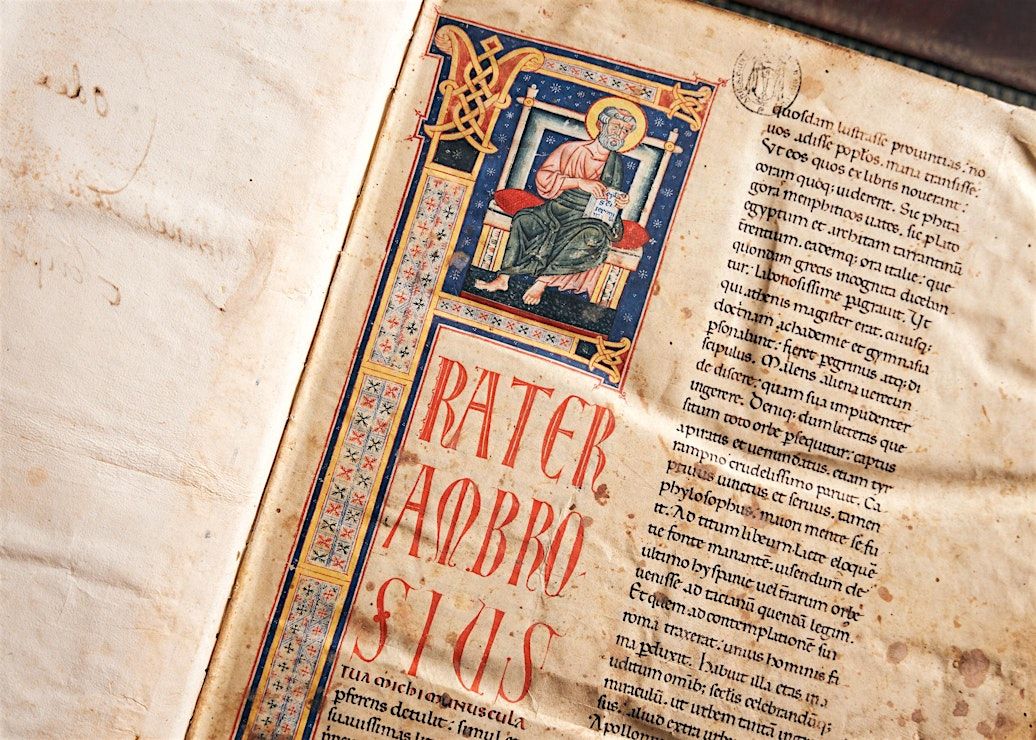 RATER
AMBRO
SIUS
TUA michi munuscula
pferens detulit: simul e
suauissimas
quosdam lustrasse prouintias. no
uos adisse poplos. maria transisse.
Vt eos quos ex libris nouerant:
coram quoq; uiderent. Sic phita
gora menphiticos uates. sic plato
egyptum et architam tarrantinū
eandemq; ora italie: que
quondam grecia incognita dicebatur
tur: laboriosissime pagrauit. Vt
qui athenis magister erat. cuiusq;
doctrinam achademie et gymnasia
psonabunt: fieret pegrinus atq; di
scipulus. Malens aliena uerecun
de discere: quam sua impudenter
ingerere. Deniq; dum litteras que
situm toto orbe psequitur: captus
apiratis et uenundatus. etiam tyr
rampno crudelissimo paruit. Ca
ptiuus uinctus et seruus. tamen
phylosophus: maior mente se fu
it. Ad titum liuium lacte eloquē
tie fonte manantē. uisendum de
ultimo hyspanie uel terarum orbe
uenisse ad tacianū quendā legim.
Et quem ad contemplationē sui
roma traxerat. unius hominis fa
ma pduxit. Habuit illa etas in
uditum omnib; seclis celebrandūq;
miraculū. ut urbem tantā ingre
sus. aliud extra urbem
Apollon